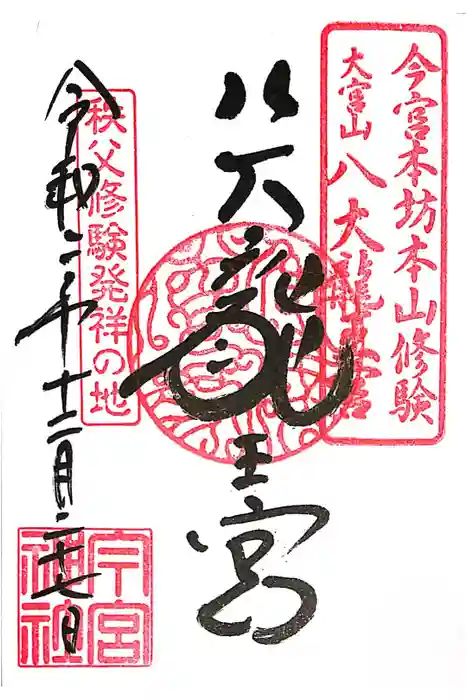 今宮本坊本山修験
大宮山八大龍王宮
八大龍王宮
秩父修験発祥の地
令和二年十二月二十七日
今宮
神社